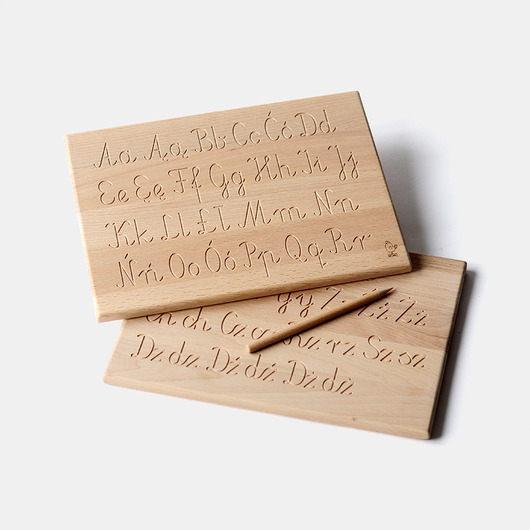 Aa Ąą Bb Cc Ćć Dd
Ee Ęę Ff Gg Hh Ii Jj
Kk Ll Łł Mm Nn
Ńń Oo Óó Pp Qq Rr
Źź Żż
Ch ch Cz cz Rz rz Sz sz
Dz dz Dź dź Dż dż